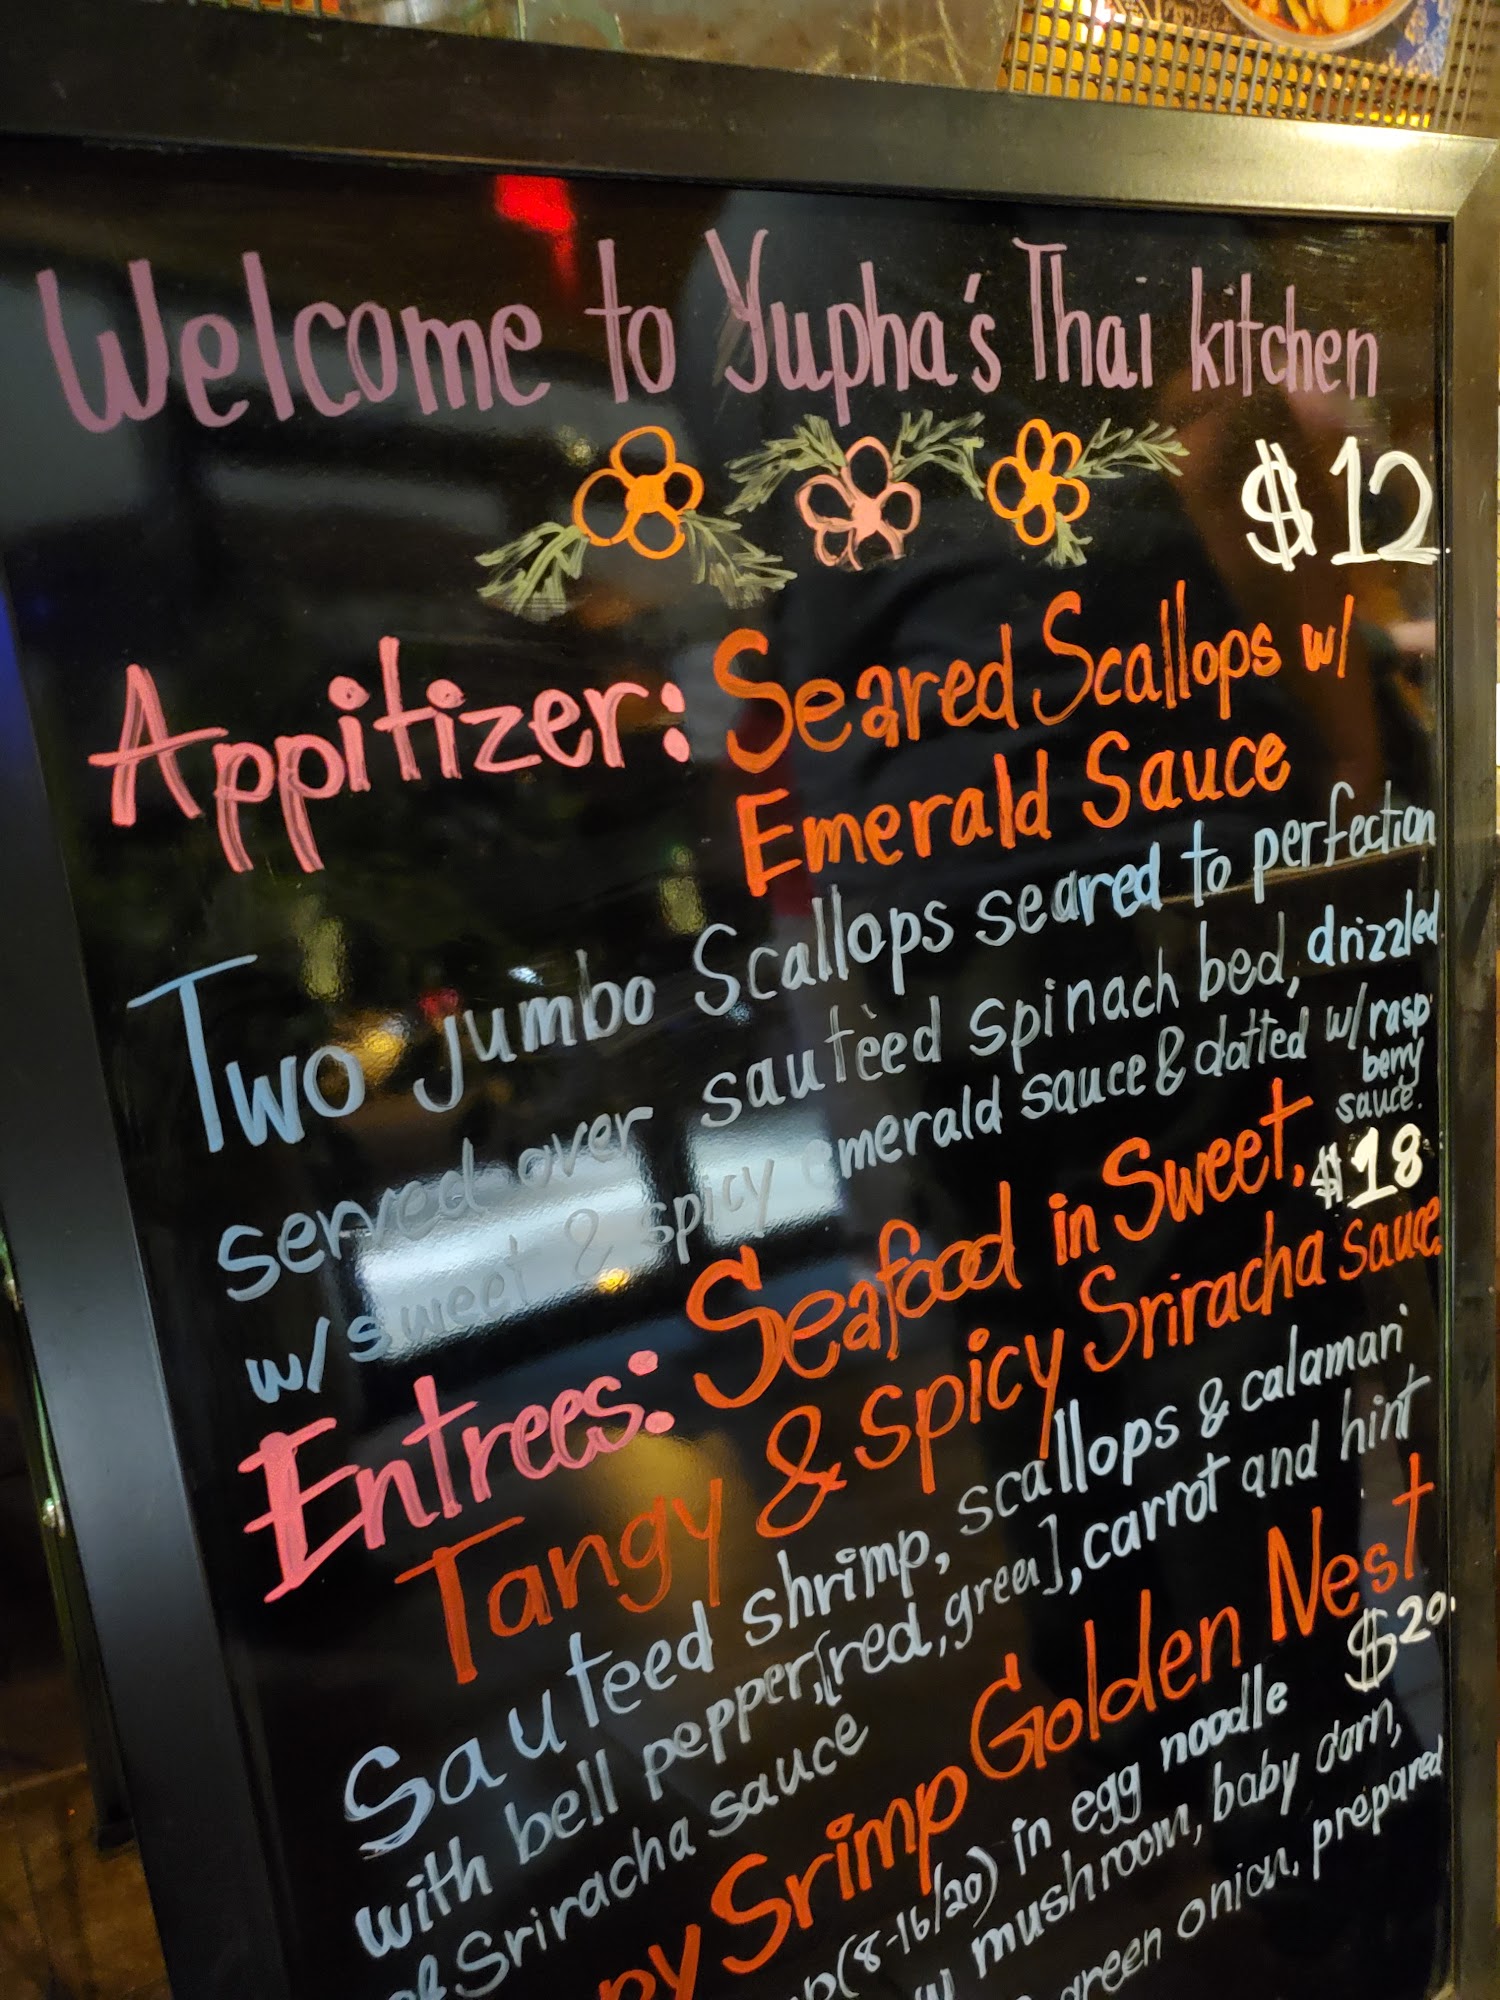 Welcome to Yupha's Thai kitchen
$12
Appitizer: Seared Scallops w/
Emerald Sauce
Two jumbo Scallops seared to perfection
served over sauteed spinach bed, drizzled
w/ sweet & spicy emerald sauce & dotted w/ rasp
berry
sauce.
Entrees: Seafood in Sweet, $18
Tangy & spicy Sriracha sauce.
Sauteed shrimp, scallops & calamari
with bell pepper, [red, green], carrot and hint
of Sriracha sauce
Srimp Golden Nest
$20.
(8-16/20) in egg noodle
mushroom, baby corn,
green onion, prepared